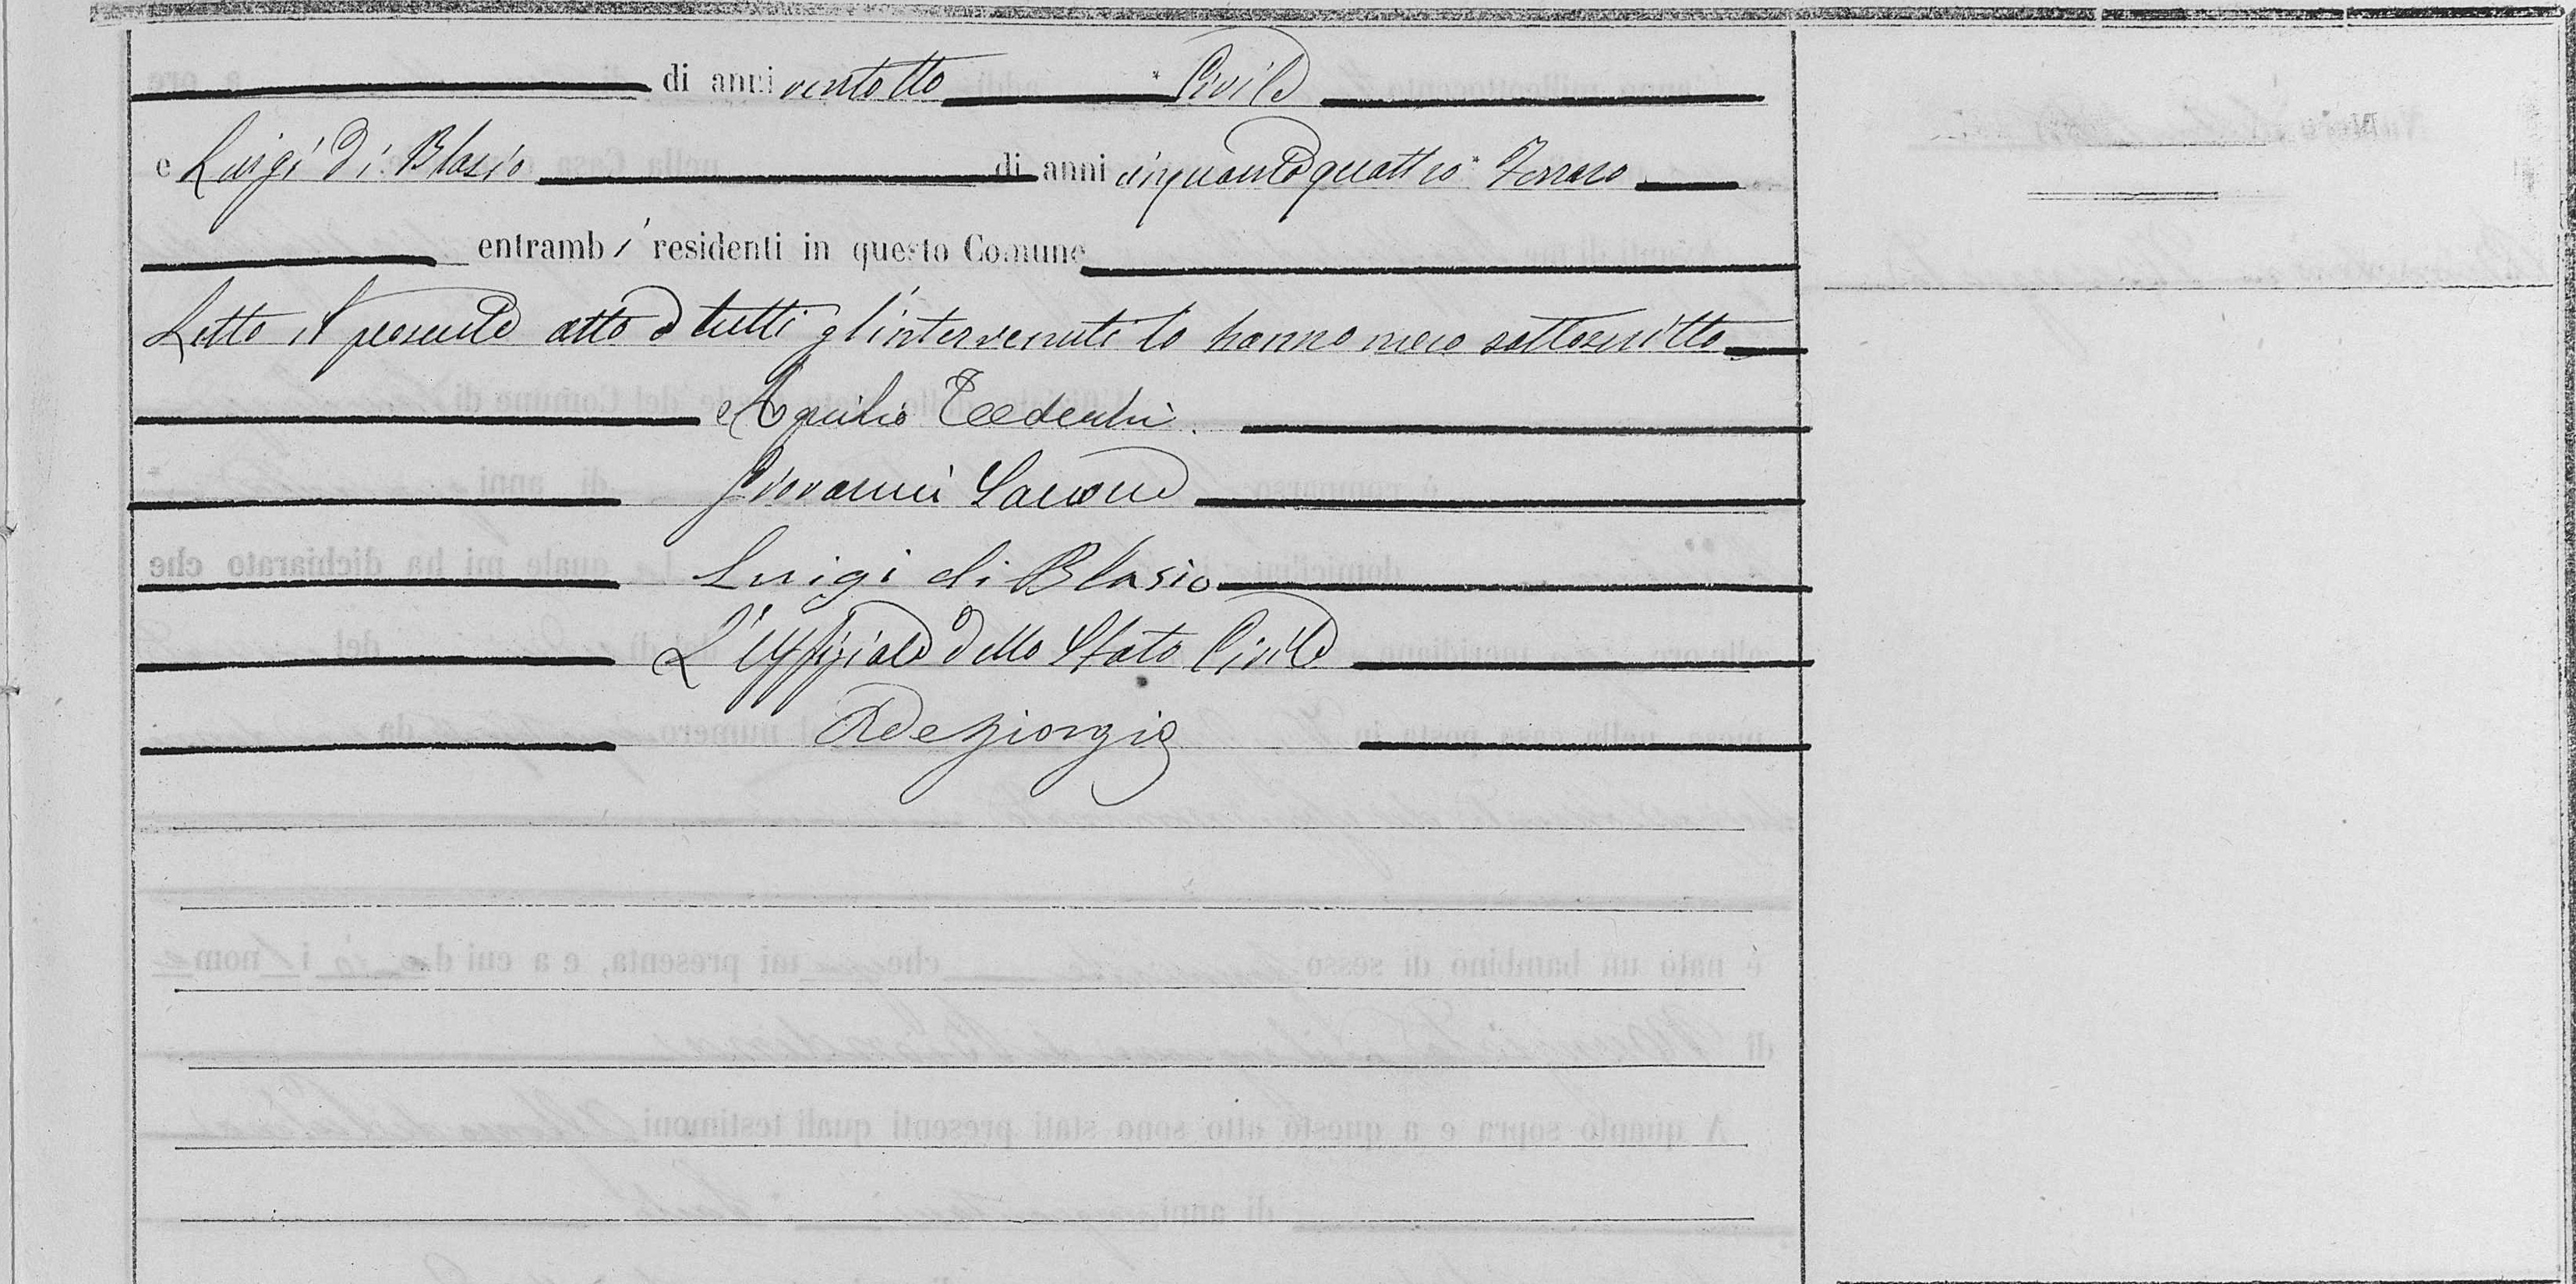 di anni ventotto Civile
e Luigi Di Blasio di anni cinquantaquattro Ferraro
entrambi residenti in questo Comune
Letto il presente atto a tutti gl'intervenuti lo hanno meco sottoscritto
Aquilio Tedeschi.
Giovanni
Luigi di Blasio
L'Uffiziale dello Stato Civile
R de Giorgio